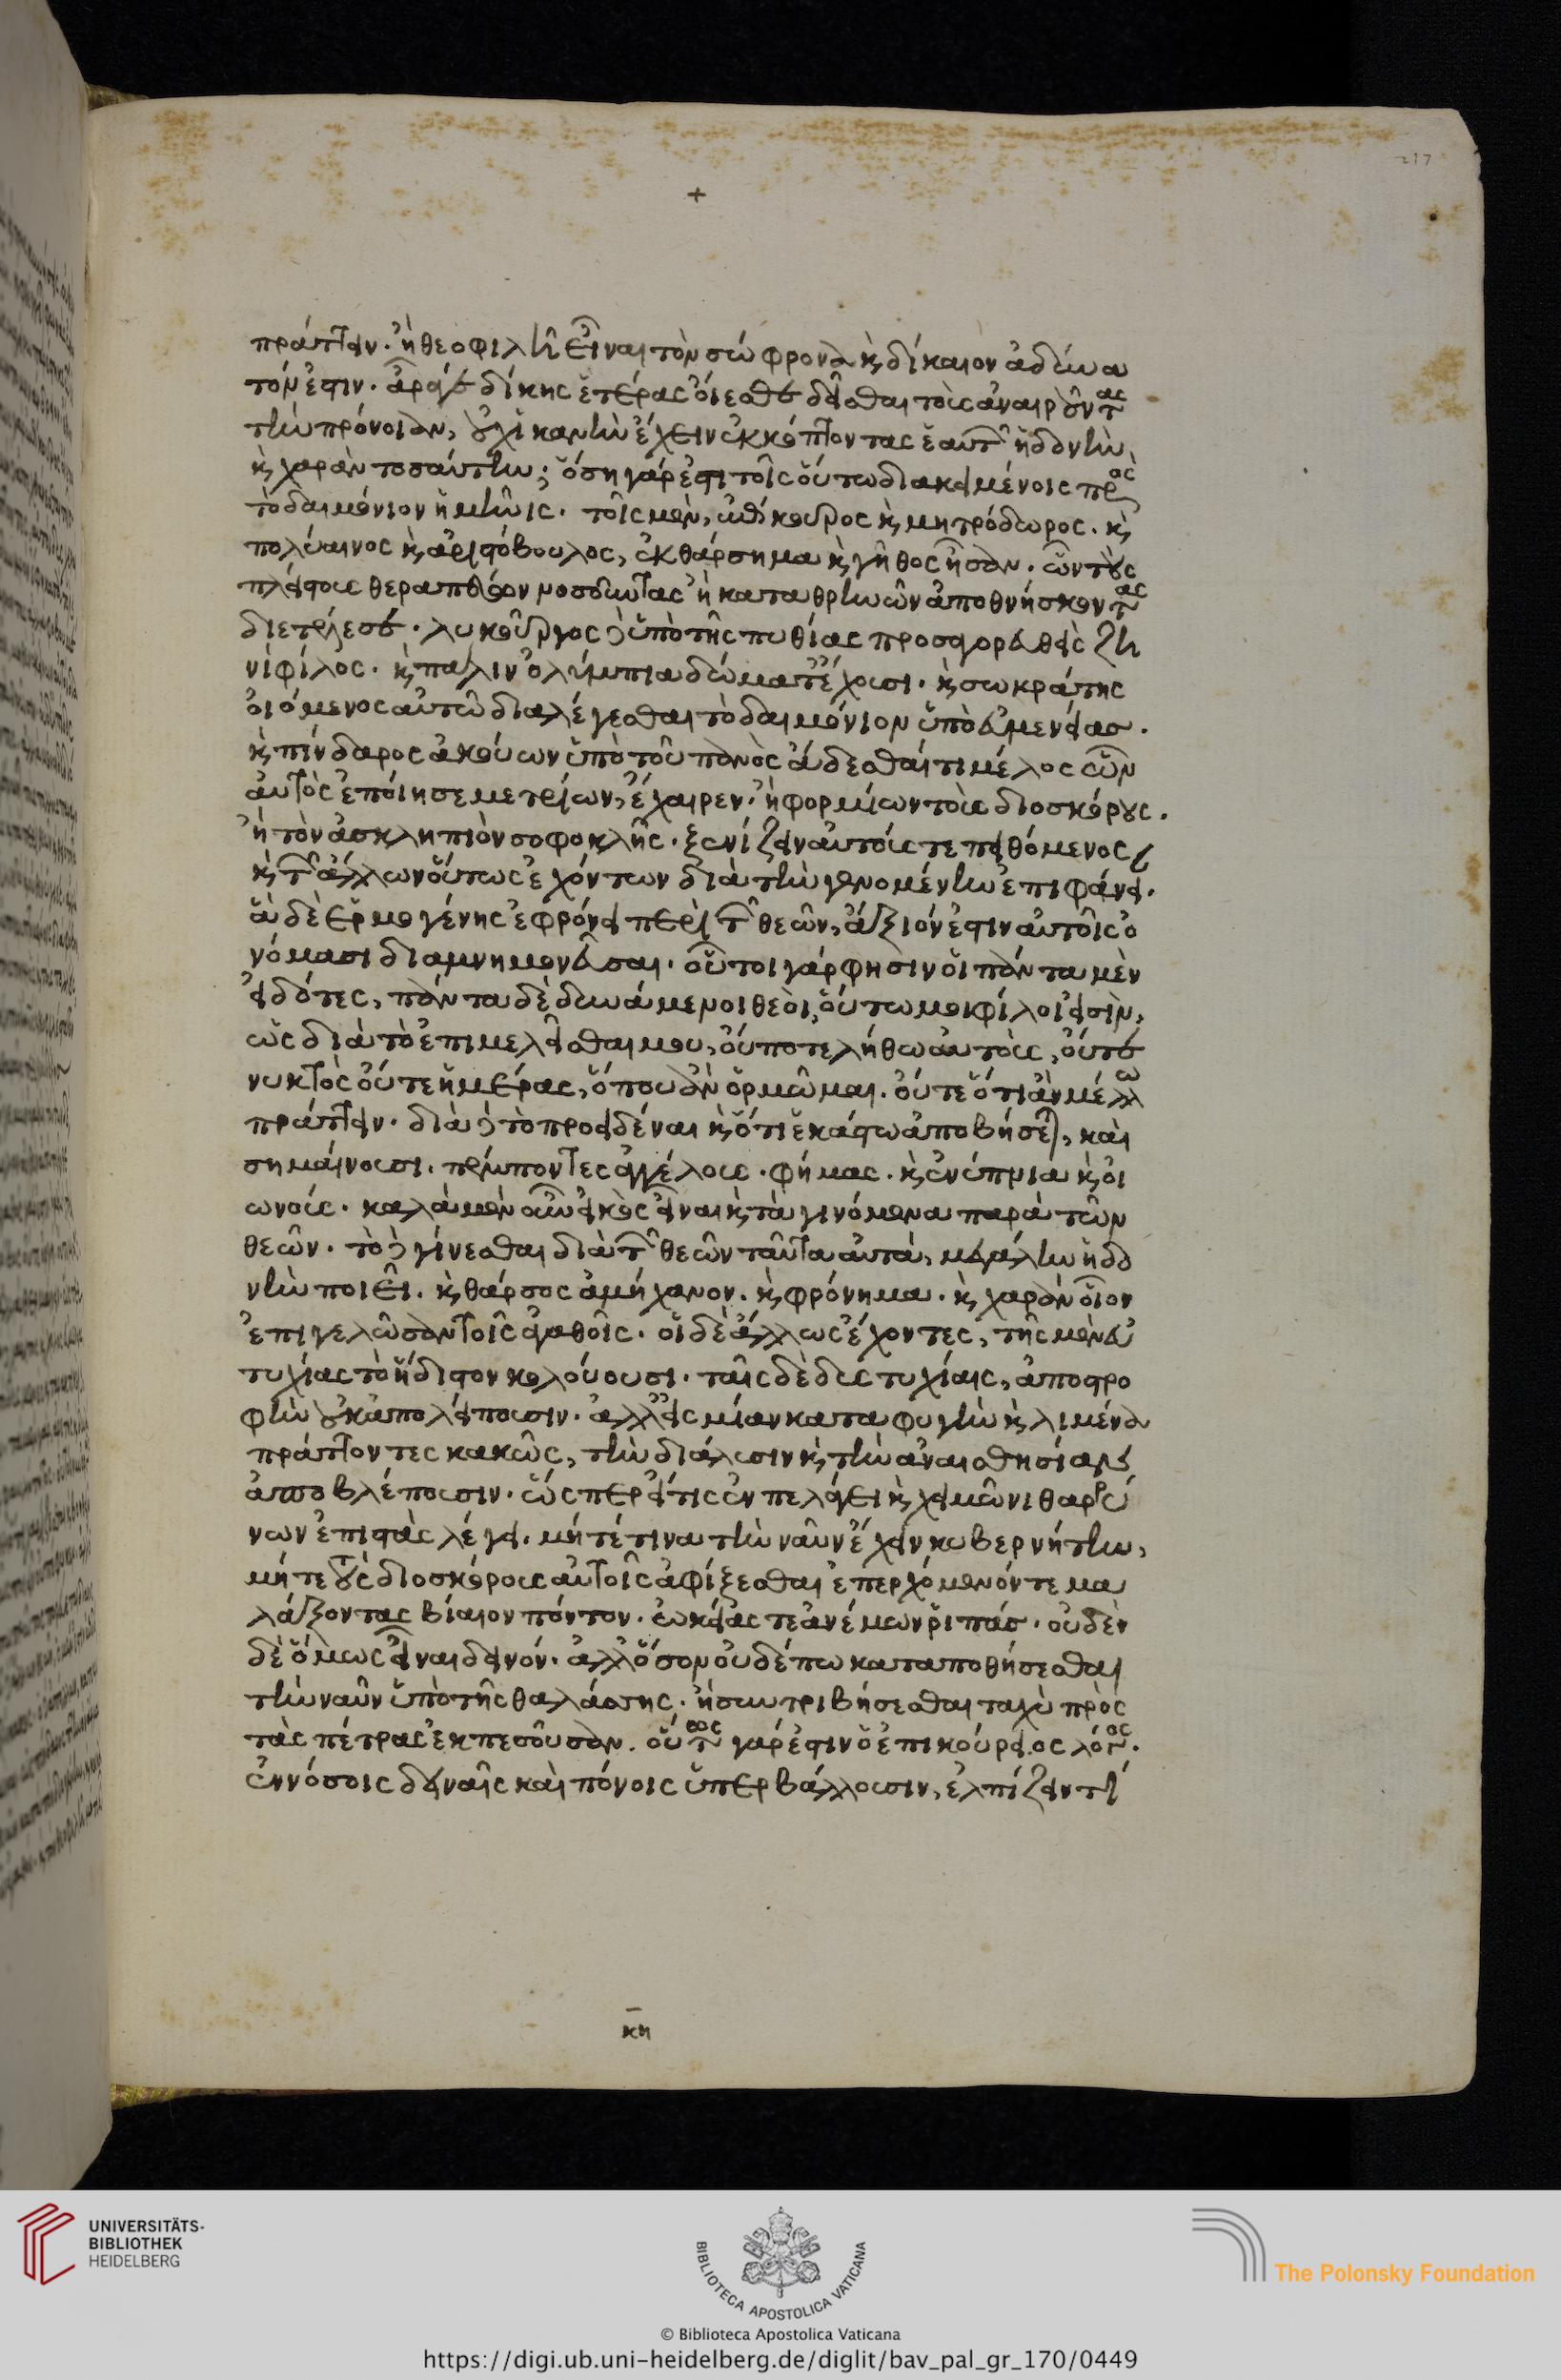 217
+
πράττειν· ἢ θεοφιλῆ εἶναι τὸν σώφρονα κ δίκαιον ἀδύνα
τόν ἐστιν. ἆρά γε δίκης ἑτέρας οἴεσθε δεῖσθαι τοὺς ἀναιροῦντας
τὴν πρόνοιαν, οὐχ ἱκανὴν ἔχειν ἐκκόπτοντας ἑαυτῶν ἡδονὴν
κ χαρὰν τοσαύτην; ὅση γάρ ἐστι τοῖς οὕτω διακειμένοις πρὸς
τὸ δαιμόνιον ἡμῖν ἧς. τοῖς μὲν, ἐπίκουρος κ μητρόδωρος. κ
πολύαινος κ ἀριστόβουλος, ἐκθάρσημα κ γῆθος ἦσαν. ὧν τοὺς
πλείστους θεραπεύων νοσοῦντας ἢ καταθρηνῶν ἀποθνήσκοντας
διετέλεσε. λυκοῦργος δὲ ὑπὸ τῆς πυθίας προσαγορευθεὶς ζη
νὶ φίλος. κ πᾶλιν ὀλύμπια δώματ' ἔχουσι. κ σωκράτης
οἰόμενος αὐτῶ διαλέγεσθαι τὸ δαιμόνιον ὑπὸ εὐμενείας.
κ πίνδαρος ἀκούων ὑπὸ τοῦ πανὸς ἄδεσθαί τι μέλος ὧν
αὐτὸς ἐποίησε μετρίων, ἔχαιρεν· ἢ φορμίων τοὺς διοσκόρους.
ἢ τὸν ἀσκληπιὸν σοφοκλῆς. ξενίζειν αὐτοὺς τε πειθόμενος
κ τῶν ἄλλων οὕτως ἐχόντων διὰ τὴν γενομένην ἐπιφάνει.
ἃ δὲ ἑρμογένης ἐφρόνει περὶ τῶν θεῶν, ἄξιόν ἐστιν αὐτοῖς ὀ
νόμασι διαμνημονεῦσαι. οὗτοι γάρ φησιν οἱ πάντα μὲν
εἰδότες, πάντα δὲ δυνάμενοι θεοὶ, οὕτω μοι φίλοι εἰσὶν,
ὡς διὰ τὸ ἐπιμελεῖσθαι μου, οὔποτε λήθω αὐτοὺς, οὔτε
νυκτὸς οὔτε ἡμέρας, ὅπου ἂν ὁρμῶμαι. οὔτε ὅτι ἂν μέλλω
πράττειν. διὰ δὲ τὸ προειδέναι κ ὅτι ἑκάστω ἀποβήσεται, καὶ
σημαίνουσι. πέμποντες ἀγγέλους. φήμας. κ ἐνύπνια κ οἰ
ωνούς. καλὰ μὲν οὖν εἰκὸς εἶναι κ τὰ γινόμενα παρὰ τῶν
θεῶν. τὸ δὲ γίνεσθαι διὰ τῶν θεῶν ταῦτα αὐτὰ, μεγάλην ἡδο
νὴν ποιεῖ. κ θάρσος ἀμήχανον. κ φρόνημα. κ χαρὰν οἷον
ἐπιγελῶσαν τοῖς ἀγαθοῖς. οἱ δὲ ἄλλως ἔχοντες, τῆς μὲν εὐ
τυχίας τὸ ἥδιστον κολούουσι. ταῖς δὲ δυστυχίαις, ἀποστρο
φὴν οὐκ ἀπολείπουσιν. ἀλλ' εἰς μίαν καταφυγὴν κ λιμένα
πράττοντες κακῶς, τὴν διάλυσιν κ τὴν ἀναισθησίαν
ἀποβλέπουσιν. ὥς περ εἴ τις ἐν πελάγει κ χειμῶνι θαρσύ
νων ἐπιστὰς λέγει. μήτέ τινα τὴν ναῦν ἔχειν κυβερνήτην,
μήτε τοὺς διοσκόρους αὐτοῖς ἀφίξεσθαι ἐπερχόμενόν τε μα
λάξοντας βίαιον πόντον. ὠκείας τε ἀνέμων ῥιπάς. οὐδὲν
δὲ ὅμως εἶναι δεινόν. ἀλλ' ὅσον οὐδέπω καταποθήσεσθαι
τὴν ναῦν ὑπὸ τῆς θαλάσσης. ἢ συντριβήσεσθαι ταχὺ πρὸς
τὰς πέτρας ἐκπεσοῦσαν. οὗτος γάρ ἐστιν ὁ ἐπικούρειος λόγος.
ἐν νόσοις δειναῖς καὶ πόνοις ὑπερβάλλουσιν, ἐλπίζειν τί
κη
UNIVERSITÄTS-
BIBLIOTHEK
HEIDELBERG
BIBLIOTECA APOSTOLICA VATICANA
The Polonsky Foundation
© Biblioteca Apostolica Vaticana
https://digi.ub.uni-heidelberg.de/diglit/bav_pal_gr_170/0449